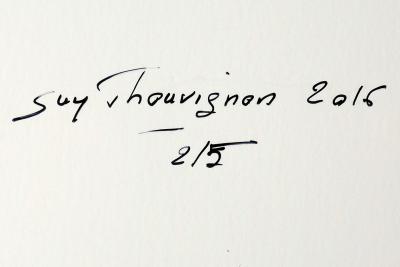 Guy Thouvignon 2016
2/5